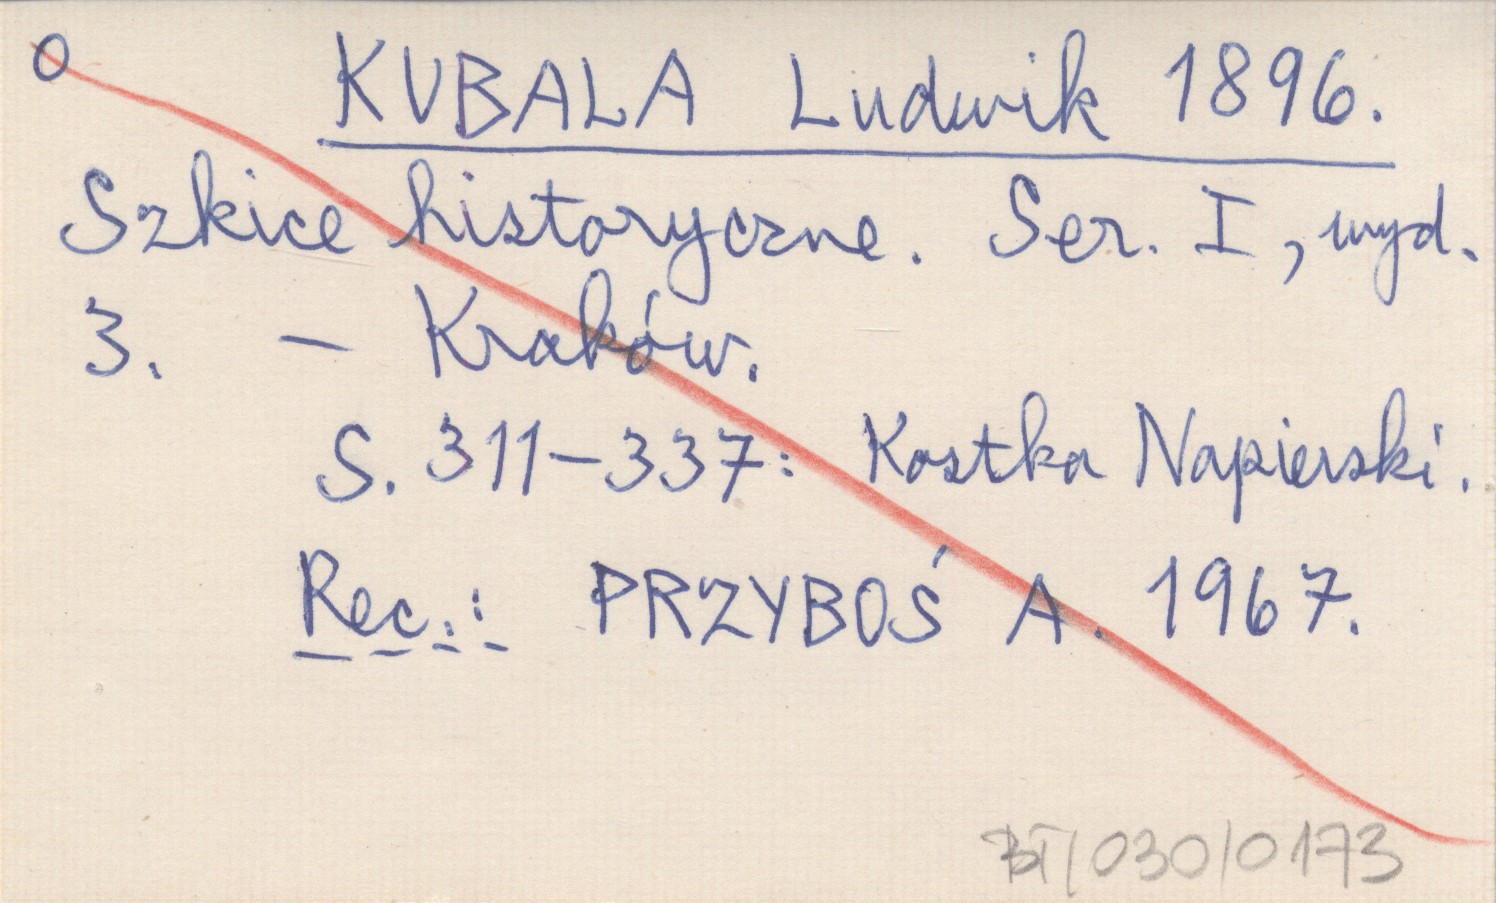 O KUBALA Ludwik 1896.
Szkice historyczne. Ser. I, wyd.
3. – Kraków.
S. 311–337: Kostka Napierski.
Rec.: PRZYBOŚ A. 1967.
BT/030/0173